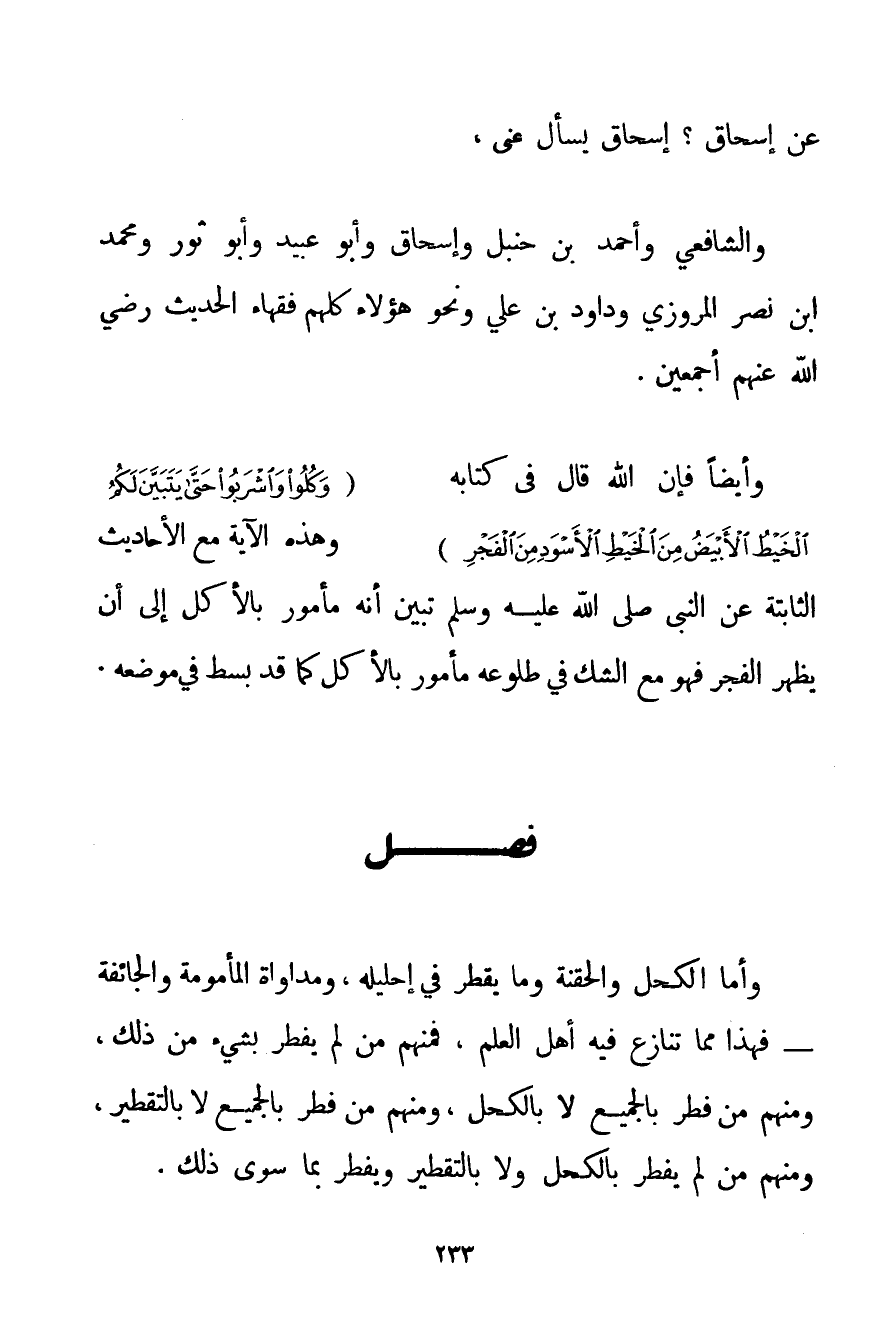 عن إسحاق ؟ إسحاق يسأل عنى ،
والشافعي وأحمد بن حنبل وإسحاق وأبو عبيد وأبو ثور ومحمد
ابن نصر المروزي وداود بن علي ونحو هؤلاء كلهم فقهاء الحديث رضي
الله عنهم أجمعين .
وأيضاً فإن الله قال فى كتابه ( وَكُلُوا۟ وَٱشْرَبُوا۟ حَتَّىٰ يَتَبَيَّنَ لَكُمُ
ٱلْخَيْطُ ٱلْأَبْيَضُ مِنَ ٱلْخَيْطِ ٱلْأَسْوَدِ مِنَ ٱلْفَجْرِ ) وهذه الآية مع الأحاديث
الثابتة عن النبى صلى الله عليـه وسلم تبين أنه مأمور بالأكل إلى أن
يظهر الفجر فهو مع الشك في طلوعه مأمور بالأكل كما قد بسط في موضعه .
فصـــــل
وأما الكحل والحقنة وما يقطر في إحليله ، ومداواة المأمومة والجائفة
ــ فهذا مما تنازع فيه أهل العلم ، فمنهم من لم يفطر بشيء من ذلك ،
ومنهم من فطر بالجميـع لا بالكحل ، ومنهم من فطر بالجميـع لا بالتقطير ،
ومنهم من لم يفطر بالكحل ولا بالتقطير ويفطر بما سوى ذلك .
٢٣٣